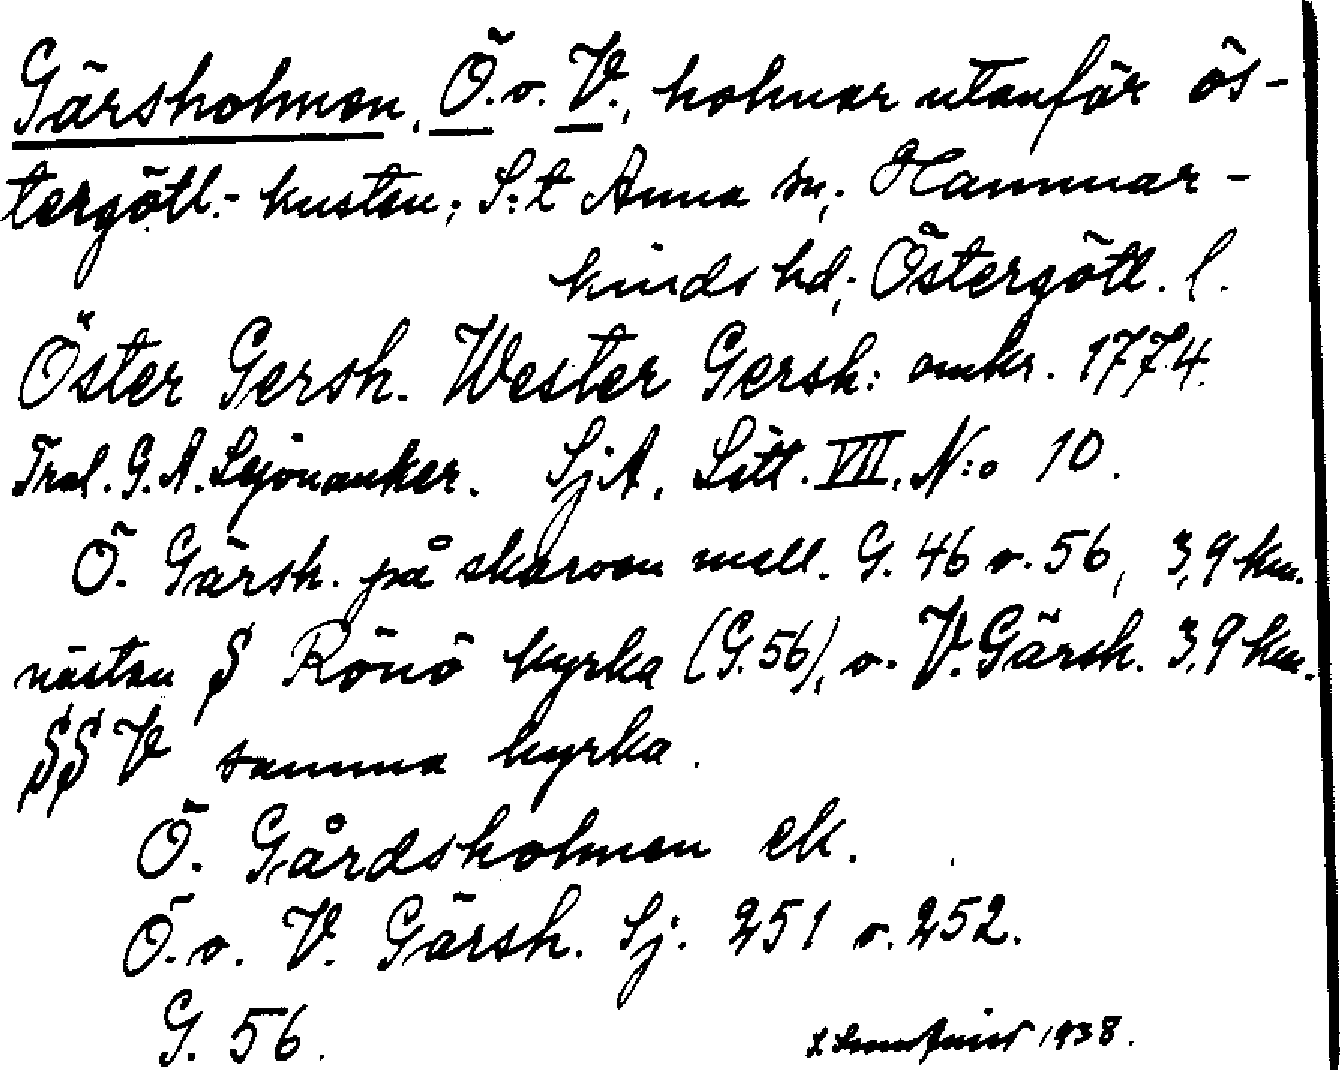 Gärsholmen, Ö. o. V., holmar utanför ös-
tergötl.- kusten; S:t Anna sn; Hammar-
kinds hd; Östergötl. l.
Öster Gersh. Wester Gersh: omkr. 1774.
Trol. G. A. Lejonanker. SjA, Litt. VII. N:o 10.
Ö. Gärsh. på skarven mell. G. 46 o. 56, 3,9 km.
nästan S Rönö kyrka (G. 56), o. V. Gärsh. 3,9 km.
SSV samma kyrka.
Ö. Gårdsholmen ek.
Ö. o. V. Gärsh. Sj. 251 o. 252.
G. 56.
1938.